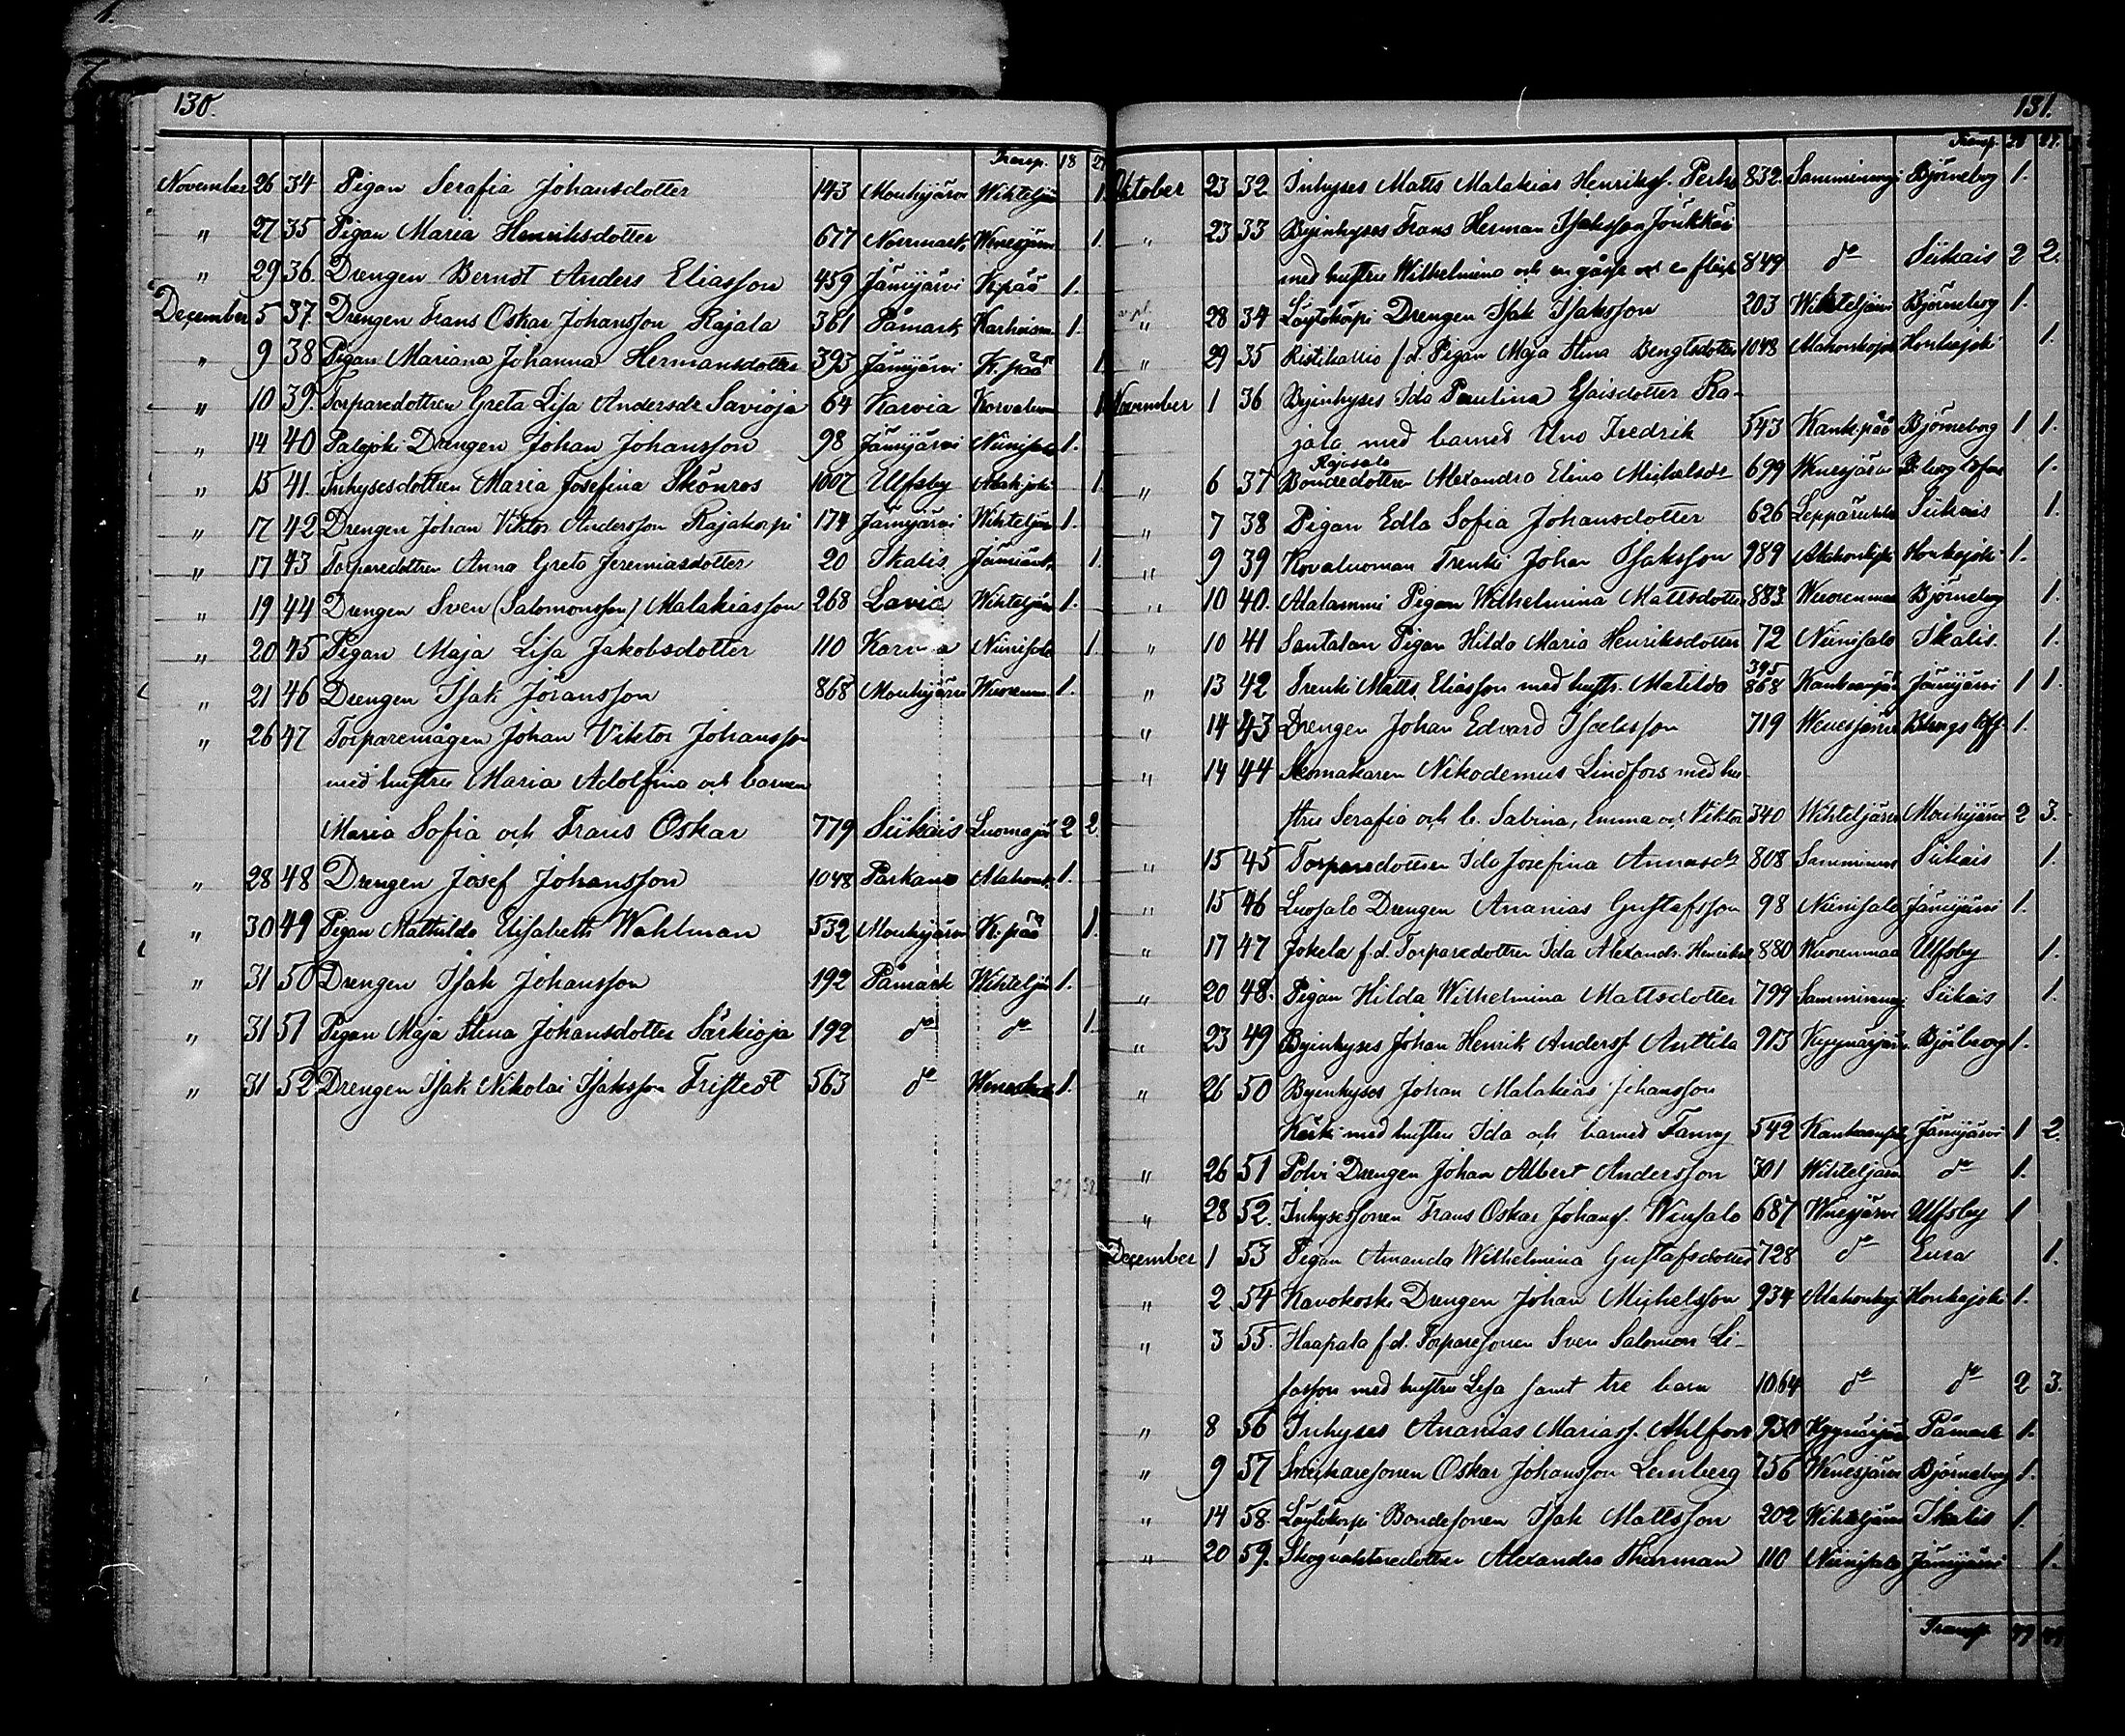 130.
Transp. 18 21
November 26 34 Pigan Serafia Johansdotter 143 Mouhijärvi Wihteljär 1.
" 27 35 Pigan Maria Henriksdotter 677 Norrmark Wenesjärvi 1.
" 29 36. Drengen Berndt Anders Eliasson 459 Jämijärvi K:pää 1.
December 5 37. Drengen Frans Oskar Johansson Rajala 361 Påmark 1.
" 9 38 Pigan Mariana Johanna Hermansdotter 393 Jämijärvi K:pää 1.
" 10 39. Torparedottren Greta Lisa Andersdr Savioja 64 Karvia Korvaluom 1.
" 14 40 Palojoki Drengen Johan Johansson 98 Jämijärvi Niinisalo 1.
" 15 41. Inhysesdottren Maria Josefina Skönros 1007 Ulfsby 1.
" 17 42 Drengen Johan Viktor Andersson Rajakorpi 174 Jämijärvi Wihteljär 1.
" 17 43 Torparedottren Anna Greta Jeremiasdotter 20 Ikalis 1.
" 19 44 Drengen Sven (Salomonsson) Malakiasson 268 Lavia Wihteljär 1.
" 20 45 Pigan Maja Lisa Jakobsdotter 110 Karvia Niinisalo 1.
" 21 46 Drengen Isak Göransson 868 Mouhijärvi Wuorenm. 1.
" 26 47 Torparemågen Johan Viktor Johansson
med hustru Maria Adolfina och barnen
Maria Sofia och Frans Oskar 779 Siikais Luomajär 2 2
" 28 48 Drengen Josef Johansson 1048 Parkano Alahonk. 1.
" 30 49 Pigan Mathilda Elisabeth Wahlman 532 Mouhijärvi K:pää 1.
" 31 50 Drengen Isak Johansson 192 Påmark Wihteljär 1.
" 31 51 Pigan Maja Stina Johansdotter Särkioja 192 do do 1.
" 31 52 Drengen Isak Nikolai Isaksson Fristedt 563 do 1.
131.
Transp. 28 27.
Oktober 23 32 Inhyses Matts Malakias Henrikss. Perho 832. Samminmaj Björneborg 1.
" 23 33 Byinhyses Frans Herman Isaksson Joukkäi
med hustru Wilhelmina och en gosse och en flicka 849 do Siikais 2 2.
" 28 34 Löytökorpi Drengen Isak Isaksson 203 Wihteljärvi Björneborg 1.
" 29 35 Ristikallio f.d. Pigan Maja Stina Bengtsdotter 1048 Alahonkajok Honkajoki 1.
November 1 36 Byinhyses Ida Paulina Esaisdotter Ra-
jala med barnet Uno Fredrik 543 Kank:pää Björneborg 1 1.
" 6 37 Rajasalo Bondedottren Alexandra Elina Michelsdr 699 Wenesjärvi 1.
" 7 38 Pigan Edla Sofia Johansdotter 626 Leppäruhka Siikais 1.
" 9 39 Kovaluoman Trenki Johan Isaksson 989 Alahonkajoki Honkajoki 1.
" 10 40. Alatammi Pigan Wilhelmina Mattsdotter 883 Wuorenmaa Björneborg 1.
" 10 41 Santalan Pigan Hilda Maria Henriksdotter 72 Niinisalo Ikalis. 1.
" 13 42 Trenki Matts Eliasson med hustr. Matilda 395 868 Kankaanpää Jämijärvi 1 1.
" 14 43 Drengen Johan Edvard Isaksson 719 Wenesjärvi 1.
" 14 44 Skomakaren Nikodemus Lindfors med hu-
stru Serafia och b. Sabina, Emma och Viktor 340 Wihteljärvi Mouhijärvi 2 3.
" 15 45 Torparedottren Ida Josefina Annasdr 808 Samminmaj Siikais 1.
" 15 46 Luosalo Drengen Ananias Gustafsson 98 Niinisalo Jämijärvi 1.
" 17 47 Jokela f.d. Torparedottren Ida Alexandr. Henriksd 880 Wuorenmaa Ulfsby 1.
" 20 48. Pigan Hilda Wilhelmina Mattsdotter 799 Samminmaj Siikais 1.
" 23 49 Byinhyses Johan Henrik Anderss. Anttila 913 Kyynärjärvi Björborg 1.
" 26 50 Byinhyses Johan Malakias Johansson
Koski med hustru Ida och barnet Fanny 542 Kankaanpää Jämijärvi 1 2.
" 26 51 Polvi Drengen Johan Albert Andersson 301 Wihteljärvi do 1.
" 28 52. Inhysessonen Frans Oskar Johanss. Winsalo 687 Wenesjärvi Ulfsby 1
December 1 53 Pigan Amanda Wilhelmina Gustafsdotter 728 do Eura 1.
" 2 54 Kavokoski Drengen Johan Michelsson 934 Alahonkaj Honkajoki 1.
" 3 55. Haapala f.d. Torparesonen Sven Salomon Li-
sasson med hustru Lisa samt tre barn 1064 do do 2 3.
" 8 56 Inhyses Ananias Mariass. Ahlfors 930 Kyynärjärvi Påmark 1.
" 9 57 Snickaresonen Oskar Johansson Lemberg 756 Wenesjärvi Björneborg 1.
" 14 58. Löytökorpi Bondesonen Isak Mattsson 202 Wihteljärvi Ikalis 1.
" 20 59. Skogvaktaredottren Alexandra Thurman 110 Niinisalo Jämijärvi 1.
Transp.